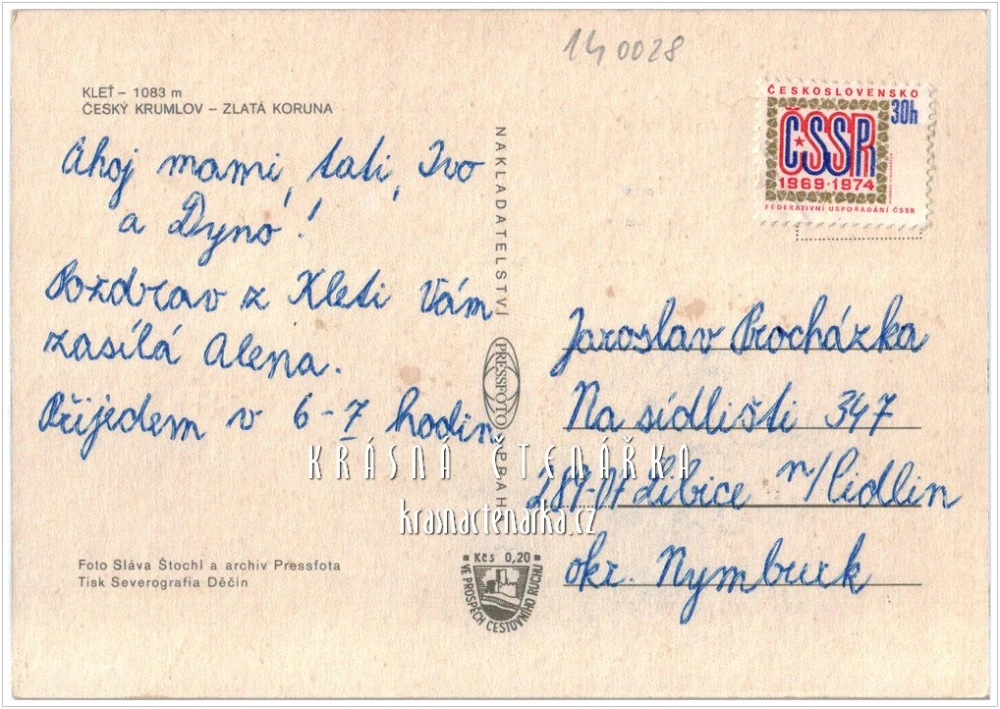 140028
KLEŤ – 1083 m
ČESKÝ KRUMLOV – ZLATÁ KORUNA
Ahoj mami, tati, Ivo
a Dyno!
Pozdrav z Kleti Vám
zasílá Alena.
Přijedem v 6-7 hodin
Foto Sláva Štochl a archiv Pressfota
Tisk Severografia Děčín
NAKLADATELSTVÍ
PRESSFOTO
PRAH
Kčs 0,20
VE PROSPĚCH CESTOVNÍHO RUCHU
ČESKOSLOVENSKO
30h
ČSSR
1969·1974
FEDERATIVNÍ USPOŘÁDÁNÍ ČSSR
Jaroslav Procházka
Na sídlišti 347
289-07 Libice n/Cidlin
okr. Nymburk
KRÁSNÁ ČTENÁŘKA
krasnactenarka.cz